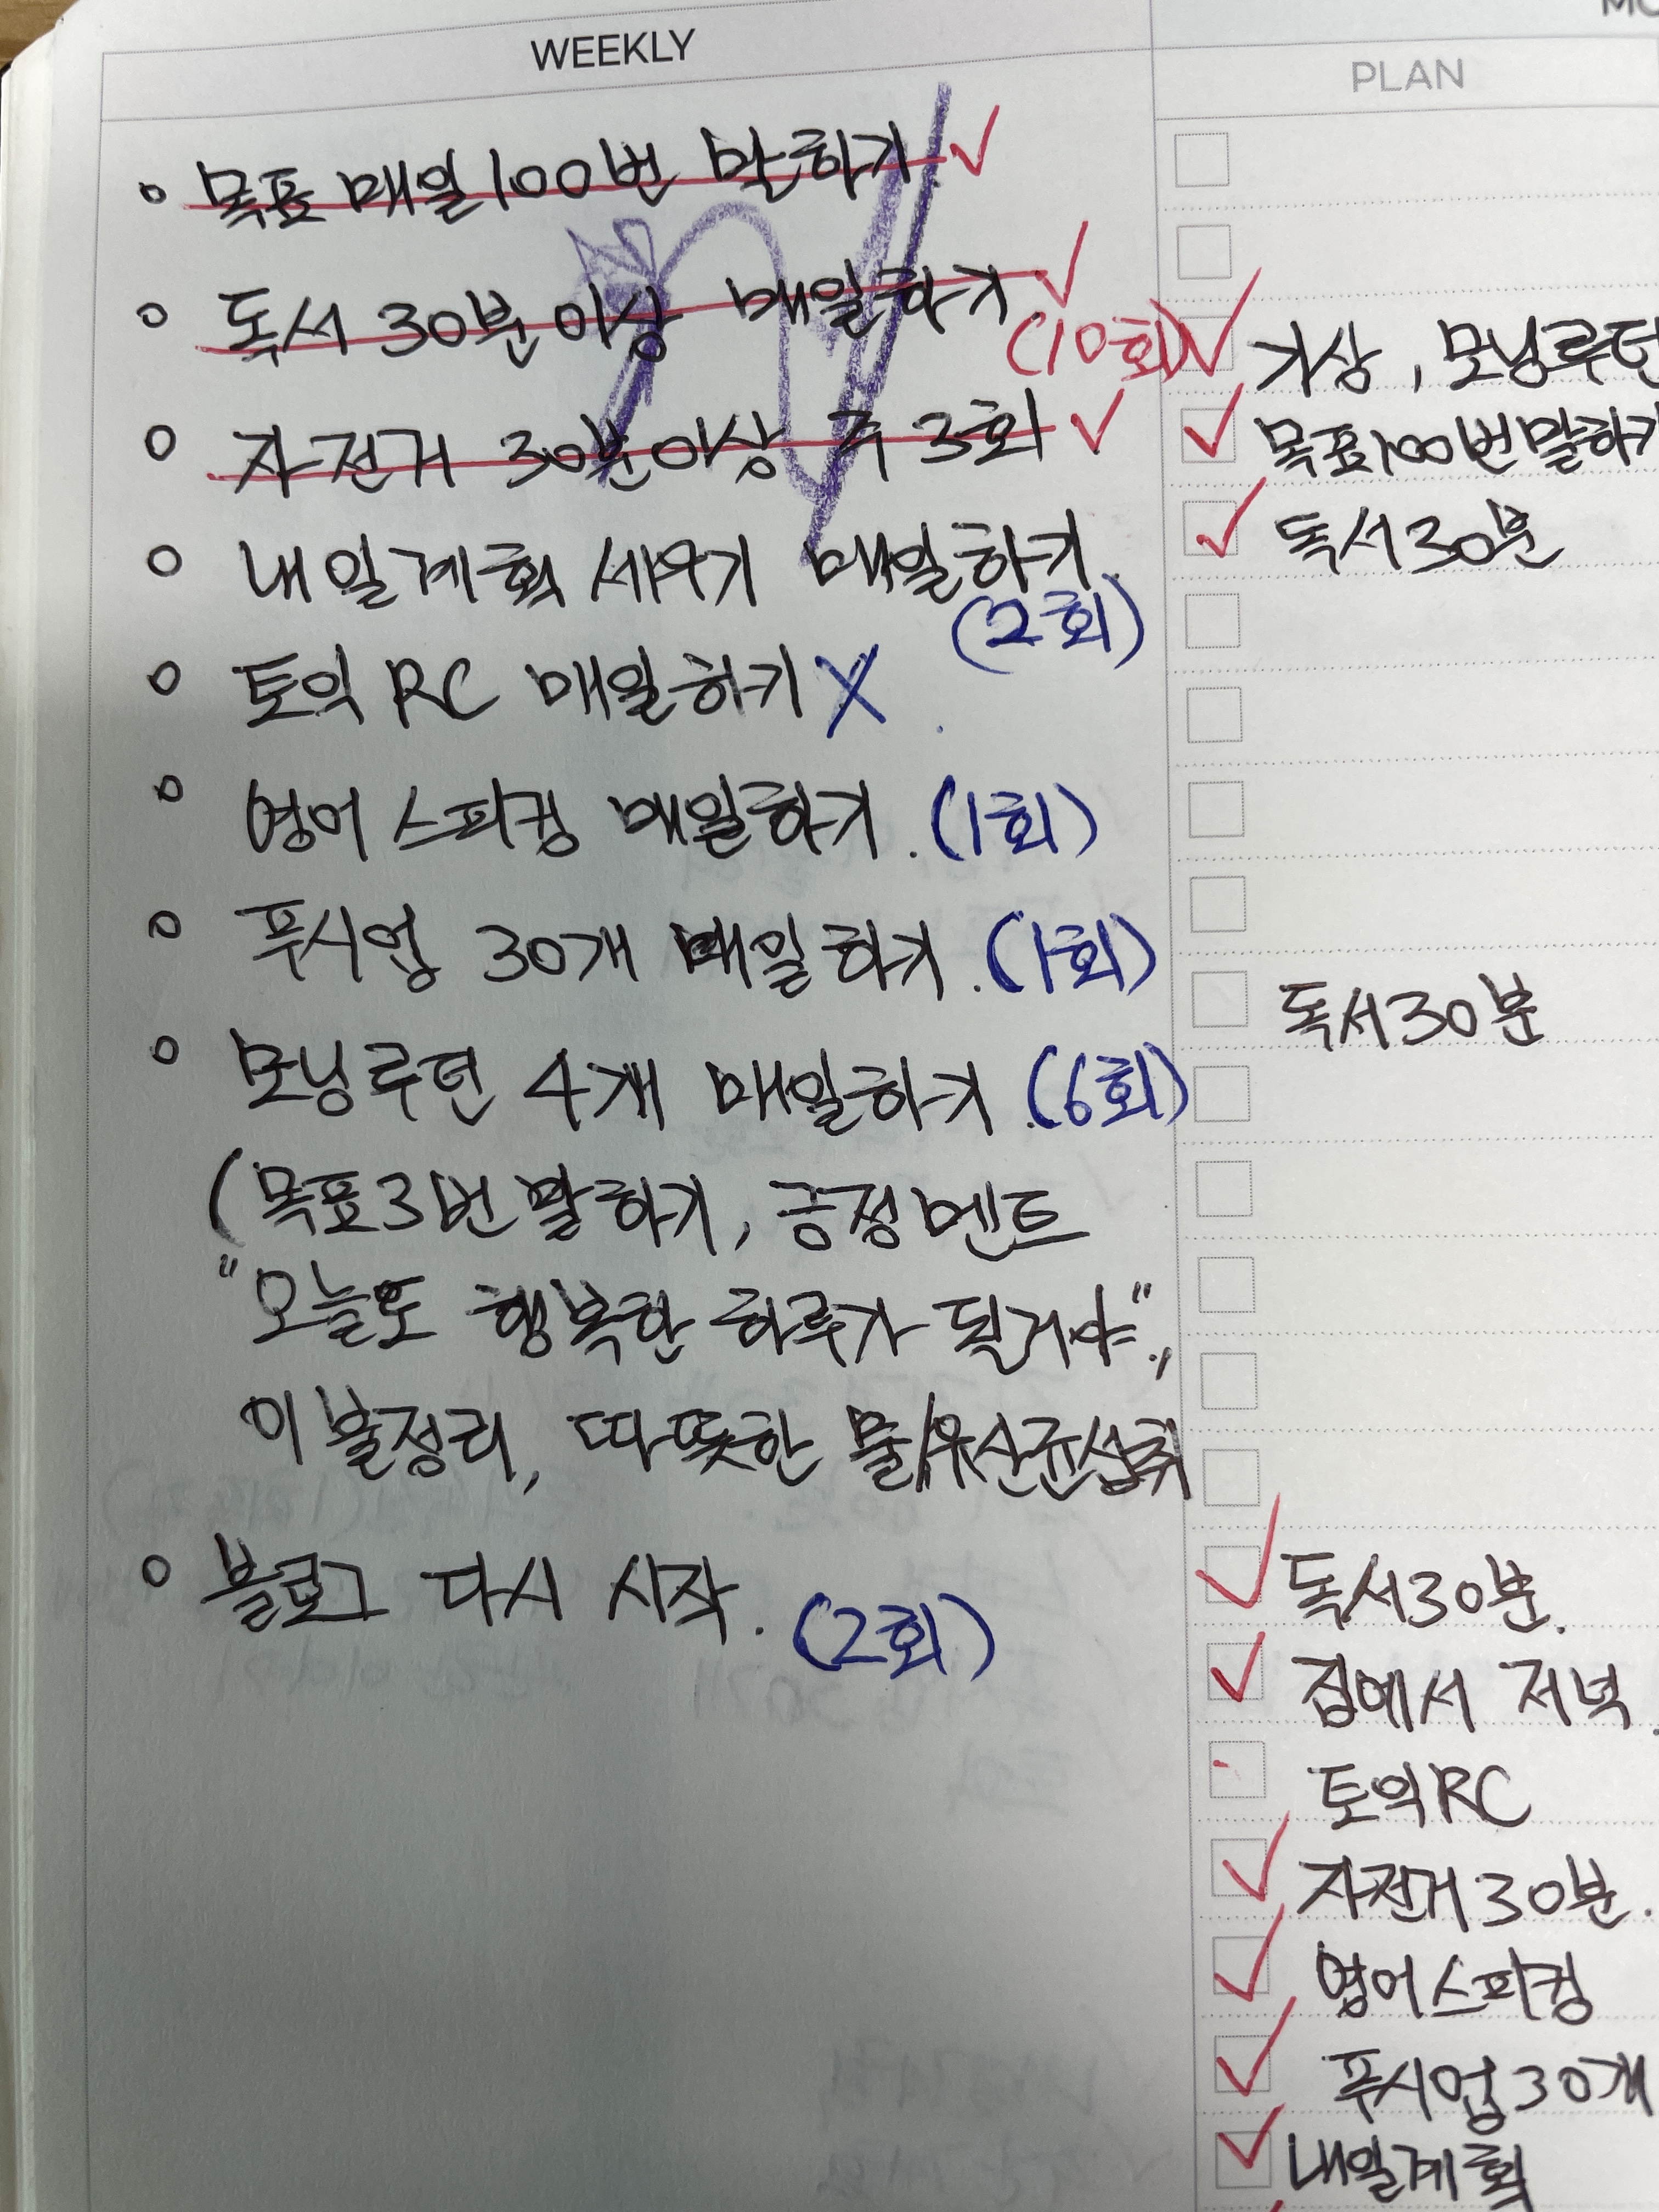 WEEKLY
목표 매일 100번 말하기.
독서 30분이상 매일하기.
(10회)
자전거 30분이상 주3회
내일계획 세우기 매일하기.
(2회)
토익 RC 매일하기 X
영어 스피킹 매일하기. (1회)
푸시업 30개 매일하기. (1회)
모닝루틴 4개 매일하기. (6회)
(목표3번 말하기, 긍정멘트
"오늘도 행복한 하루가 될거야",
이불정리, 따뜻한 물/유산균섭취
블로그 다시 시작.
(2회)
PLAN
기상, 모닝루틴
목표100번말하기
독서30분
독서30분
독서30분.
집에서 저녁.
토익RC
자전거30분.
영어스피킹
푸시업30개
내일계획